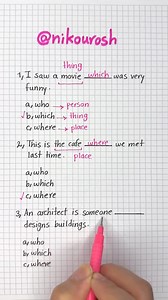 @nikourosh
thing
1, I saw a movie which was very
funny.
a, who → person
b, which → thing
c, where → place
2, This is the cafe where we met
last time. place
a, who
b, which
c, where
3, An architect is someone ______
designs buildings.
a, who
b, which
c, where